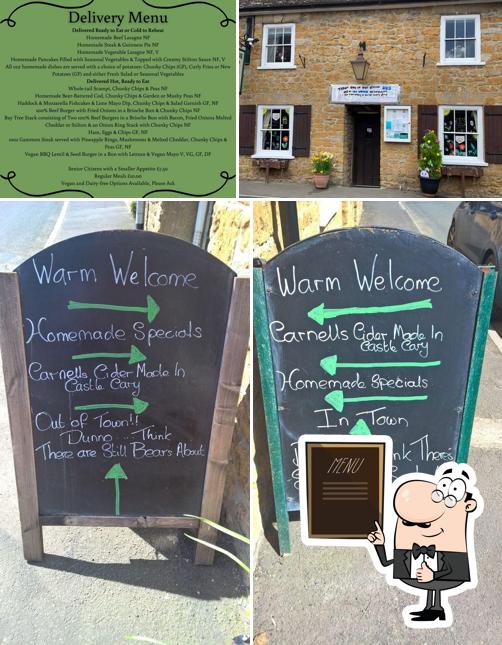 Delivery Menu
Delivered Ready to Eat or Cold to Reheat
Homemade Beef Lasagne NF
Homemade Steak & Guinness Pie NF
Homemade Vegetable Lasagne NF, V
Homemade Pancakes Filled with Seasonal Vegetables & Topped with Creamy Stilton Sauce NF, V
All our homemade dishes are served with a choice of potatoes; Chunky Chips (GF), Curly Fries or New
Potatoes (GF) and either Fresh Salad or Seasonal Vegetables
Delivered Hot, Ready to Eat
Whole-tail Scampi, Chunky Chips & Peas NF
Homemade Beer-Battered Cod, Chunky Chips & Garden or Mushy Peas NF
Haddock & Mozzarella Fishcakes & Lime Mayo Dip, Chunky Chips & Salad Garnish GF, NF
100% Beef Burger with Fried Onions in a Brioche Bun & Chunky Chips NF
Bay Tree Stack consisting of Two 100% Beef Burgers in a Brioche Bun with Bacon, Fried Onions Melted
Cheddar or Stilton & an Onion Ring Stack with Chunky Chips NF
Ham, Eggs & Chips GF, NF
10oz Gammon Steak served with Pineapple Rings, Mushrooms & Melted Cheddar, Chunky Chips &
Peas GF, NF
Vegan BBQ Lentil & Seed Burger in a Bun with Lettuce & Vegan Mayo V, VG, GF, DF
Senior Citizens with a Smaller Appetite £7.50
Regular Meals £10.00
Vegan and Dairy-free Options Available, Please Ask
Warm Welcome
Homemade Specials
Carnells Cider Made In
Castle Cary
Out of Town!!
Dunno... Think
There are Still Bears About
Warm Welcome
Carnells Cider Made In
Castle Cary
Homemade Specials
In Town
nk There's
MENU